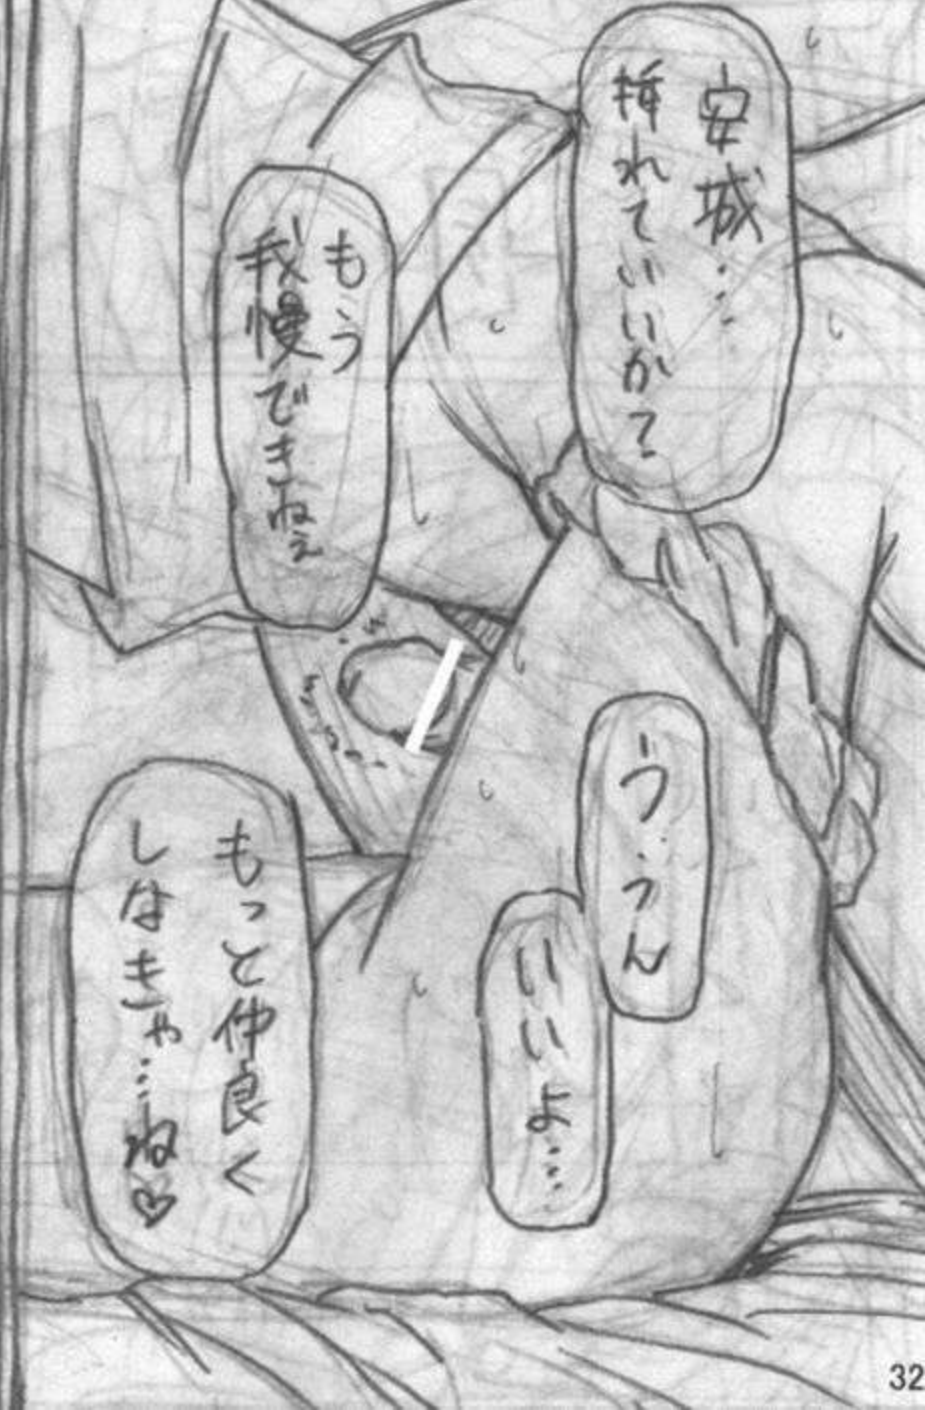 安城…
挿れていいか?
もう
我慢できねぇ
う…うん
いいよ…
もっと仲良く
しなきゃ…ね♡
32